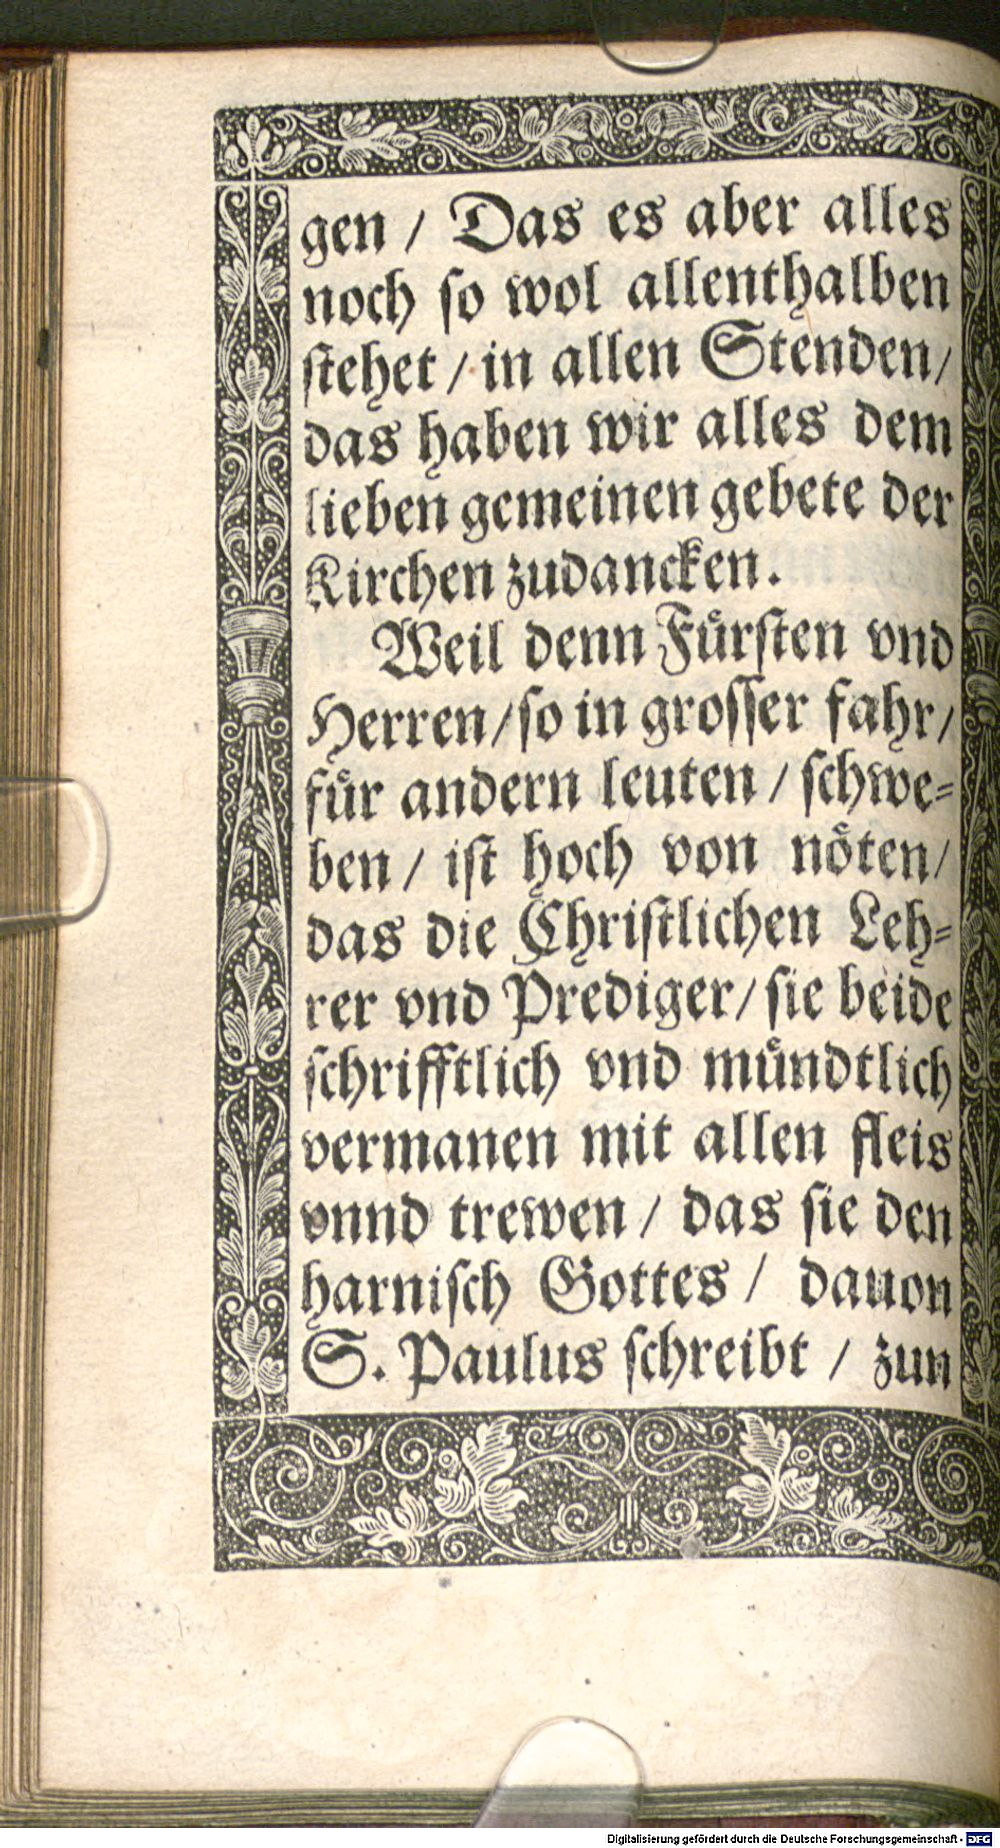 gen / Das es aber alles
noch ſo wol allenthalben
ſtehet / in allen Stenden /
das haben wir alles dem
lieben gemeinen gebete der
Kirchen zudancken.
Weil denn Fuͤrſten vnd
Herren / ſo in groſſer fahr /
fuͤr andern leuten / ſchwe⸗
ben / iſt hoch von noͤten /
das die Chriſtlichen Leh⸗
rer vnd Prediger / ſie beide
ſchrifftlich vnd muͤndtlich
vermanen mit allen fleis
vnnd trewen / das ſie den
harniſch Gottes / dauon
S. Paulus ſchreibt / zun
Digitalisierung gefördert durch die Deutsche Forschungsgemeinschaft - DFG